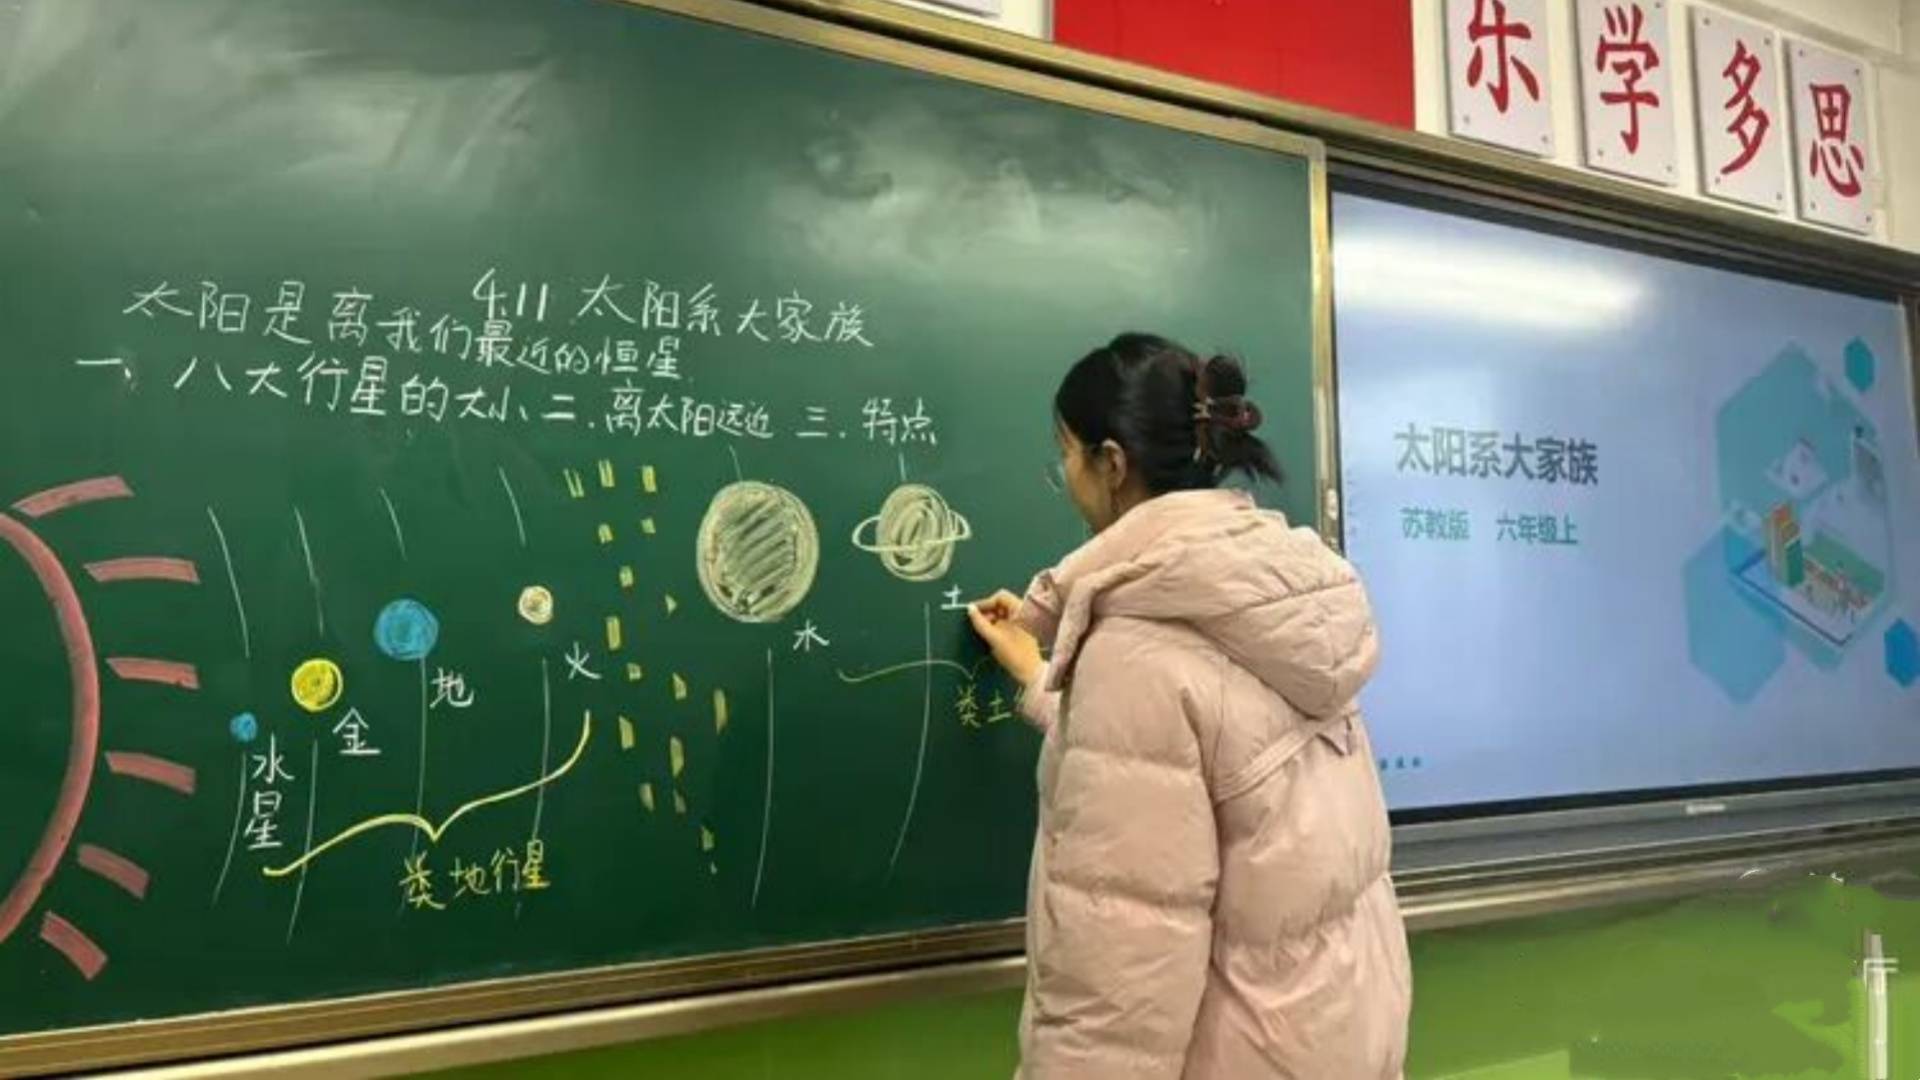 乐学多思
4.11 太阳系大家族
太阳是离我们最近的恒星
一、八大行星的大小 二.离太阳远近 三.特点
水星
金
地
火
水
土
类地行星
类土
太阳系大家族
苏教版 六年级上